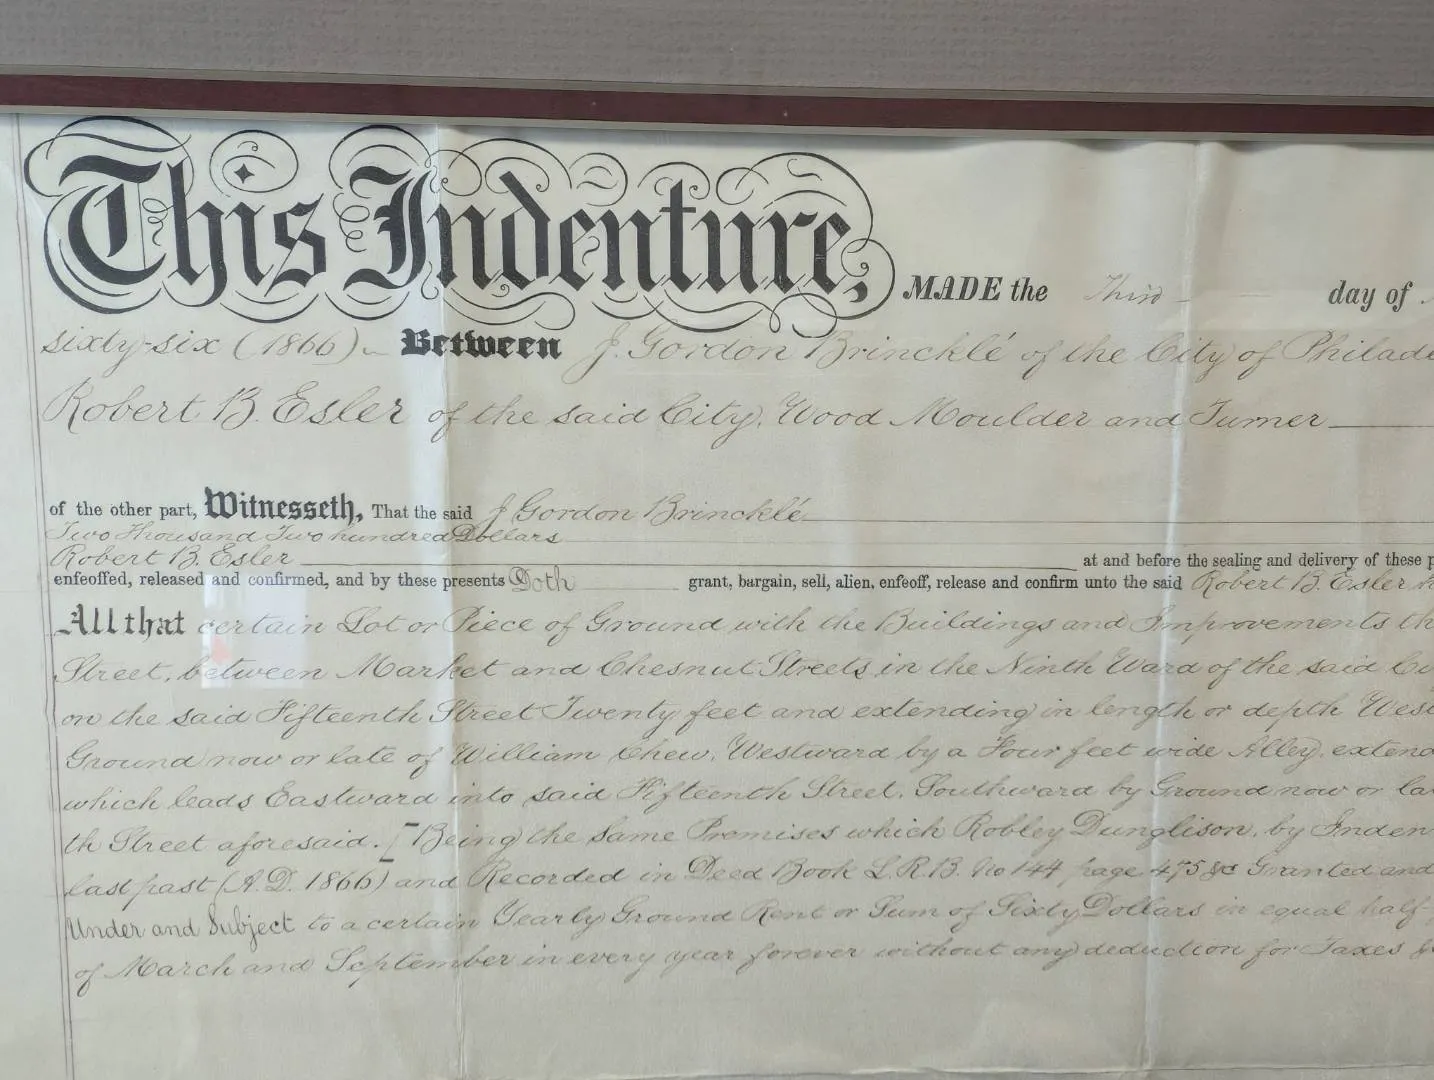 This Indenture, MADE the Third day of
sixty-six (1866) Between J. Gordon Brincklé of the City of Philade
Robert B. Esler of the said City, Wood Moulder and Turner
of the other part, Witnesseth, That the said J Gordon Brincklé
Two Thousand Two hundred Dollars
Robert B. Esler at and before the sealing and delivery of these p
enfeoffed, released and confirmed, and by these presents Doth grant, bargain, sell, alien, enfeoff, release and confirm unto the said Robert B. Esler h
All that certain Lot or Piece of Ground with the Buildings and Improvements th
Street, between Market and Chesnut Streets in the Ninth Ward of the said Ci
on the said Fifteenth Street Twenty feet and extending in length or depth West
Ground now or late of William Chew, Westward by a Four feet wide Alley, extend
which leads Eastward into said Fifteenth Street, Southward by Ground now or la
th Street aforesaid. [Being the same Premises which Robley Dunglison, by Inden
last past (A.D. 1866) and Recorded in Deed Book L.R.B. No 144 page 475 &c Granted and
Under and Subject to a certain Yearly Ground Rent or Sum of Sixty Dollars in equal half-
of March and September in every year forever without any deduction for Taxes &